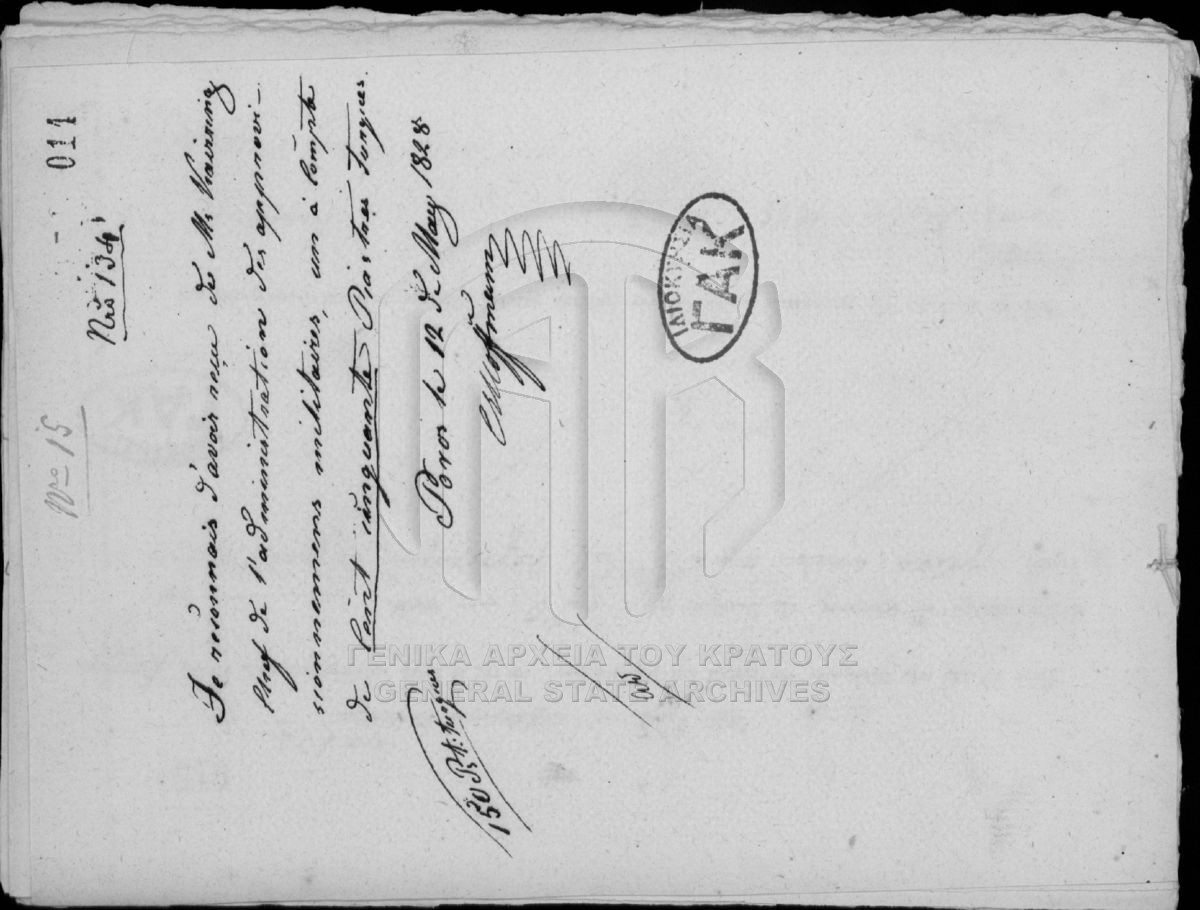 011
Nro 15
Nro 134
Je reconnois d'avoir reçu de Mr
Chef de l'administration des approvi-
sionnemens militaires, un à Compte
de Cent cinquante Piastres turques.
Poros le 12 de May 1828
Hoffmann
150 P.t: turques
ΓΑΚ
ΓΕΝΙΚΑ ΑΡΧΕΙΑ ΤΟΥ ΚΡΑΤΟΥΣ
GENERAL STATE ARCHIVES